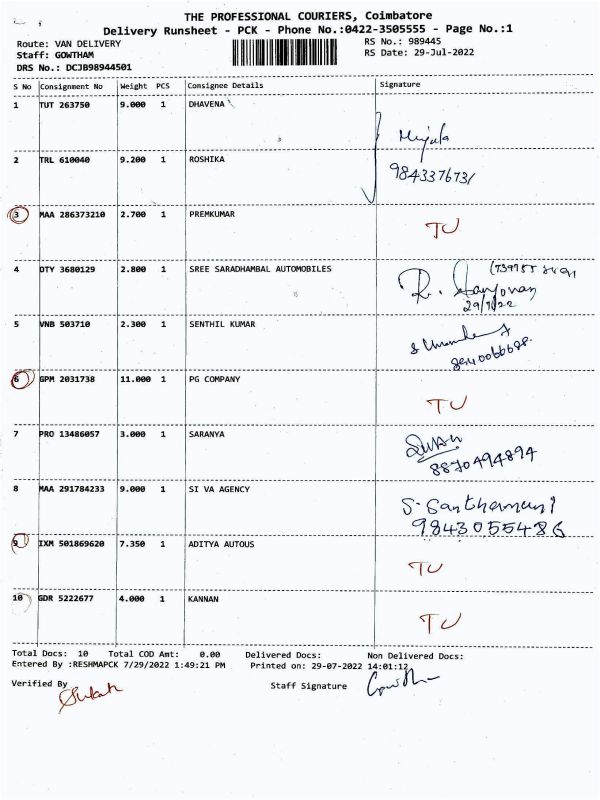 THE PROFESSIONAL COURIERS, Coimbatore
Delivery Runsheet - PCK - Phone No.:0422-3505555 - Page No.:1
Route: VAN DELIVERY RS No.: 989445
Staff: GOWTHAM RS Date: 29-Jul-2022
DRS No.: DCJB98944501
S No Consignment No Weight PCS Consignee Details Signature
1 TUT 263750 9.000 1 DHAVENA
9843376731
2 TRL 610040 9.200 1 ROSHIKA
3 MAA 286373210 2.700 1 PREMKUMAR TU
4 OTY 3680129 2.800 1 SREE SARADHAMBAL AUTOMOBILES
29/7/22
5 VNB 503710 2.300 1 SENTHIL KUMAR
6 GPM 2031738 11.000 1 PG COMPANY TU
7 PRO 13486057 3.000 1 SARANYA
8870494894
8 MAA 291784233 9.000 1 SI VA AGENCY
9843055486
9 IXM 501869620 7.350 1 ADITYA AUTOUS TU
10 GDR 5222677 4.000 1 KANNAN TU
Total Docs: 10 Total COD Amt: 0.00 Delivered Docs: Non Delivered Docs:
Entered By :RESHMAPCK 7/29/2022 1:49:21 PM Printed on: 29-07-2022 14:01:12
Verified By Staff Signature